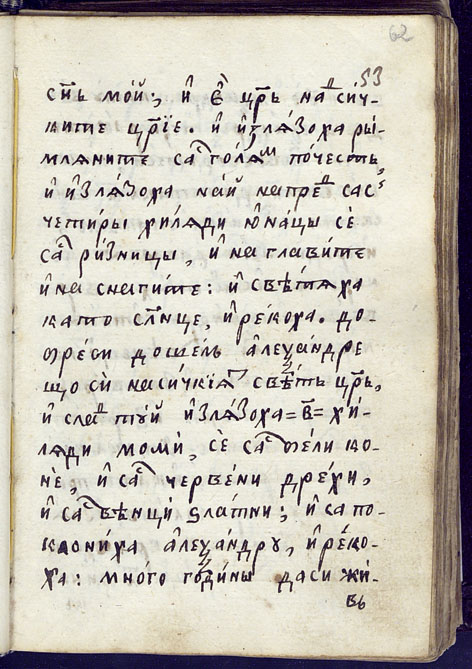 62
53
сн҃ь мо́й; и҆ є҆ цр҃ь надⷣ си́ч-
ките цр҃їе. и҆ и҆злѧ́зоха ры́-
млѧните сасⷭ голѧ́мⷨ по́честь
и҆ и҆злѧ́зоха на́й напредⷣ сасⷭ
четы́ры хи́лѧди ю҆на́цы се
сасⷭ ри́зницы, и҆ на главите
и҆ на снагите: и҆ свѣ́тѧха
като сл҃нце, и҆ реко́ха. до-
бре си доше́лъ а҆леѯа́ндре
що сѝ на си́чкїѧтⷮ свѣ́тъ цр҃ь,
и҆ следⷣ ту́й и҆злѧ́зоха =в҃= хи́-
лѧди моми́, се сасⷭ бели ко-
не, и҆ сасⷭ черве́ни дре́хи,
и҆ сасⷭ вѣнци́ ѕлатни; и҆ са по-
клони́ха а҆леѯа́ндру, и҆ реко́-
ха: мно́го годи́ны да си жи́-
въ